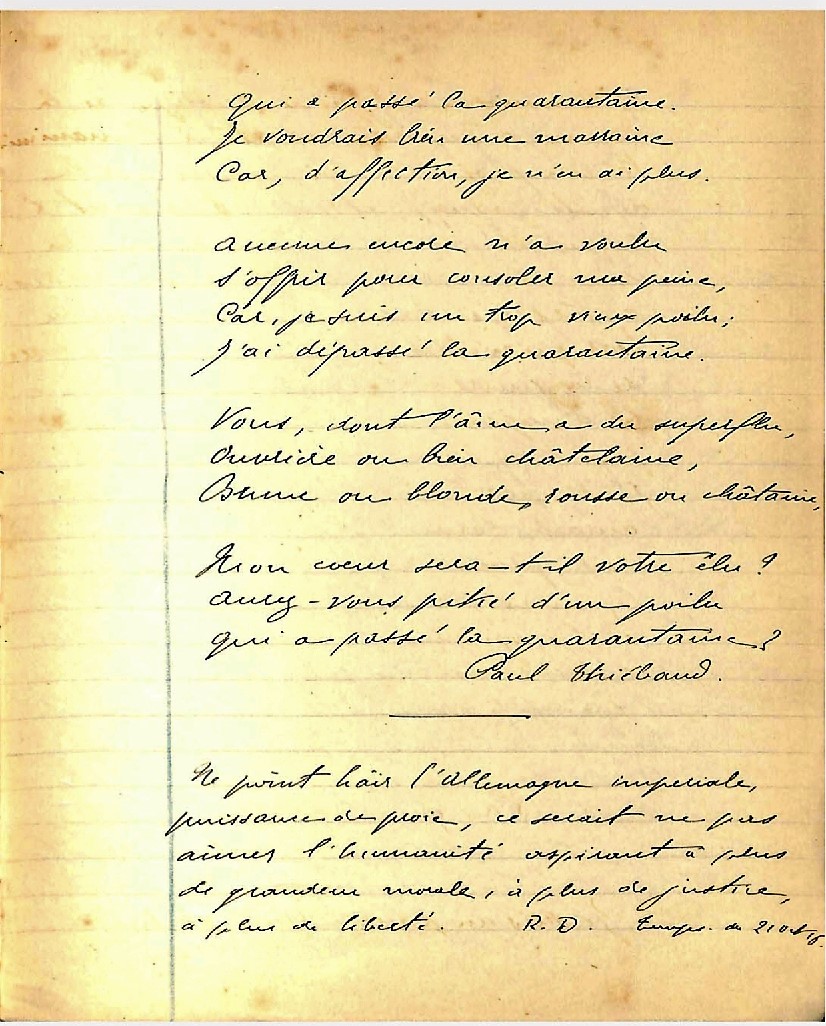 Qui a passé la quarantaine.
Je voudrais bien une marraine
Car, d'affection, je n'en ai plus.
Aucune encore n'a voulu
s'offrir pour consoler ma peine,
Car, je suis un trop vieux poilu;
J'ai dépassé la quarantaine.
Vous, dont l'âme a du superflu,
Ouvrière ou bien châtelaine,
Brune ou blonde, rousse ou châtaine,
Mon coeur sera-t-il votre élu ?
Aurez-vous pitié d'un poilu
qui a passé la quarantaine ?
Paul Thiébaud.
Ne point haïr l'Allemagne impériale,
puissance de proie, ce serait ne pas
aimer l'humanité aspirant à plus
de grandeur morale, à plus de justice,
à plus de liberté. R. D. Temps. du 21 oct